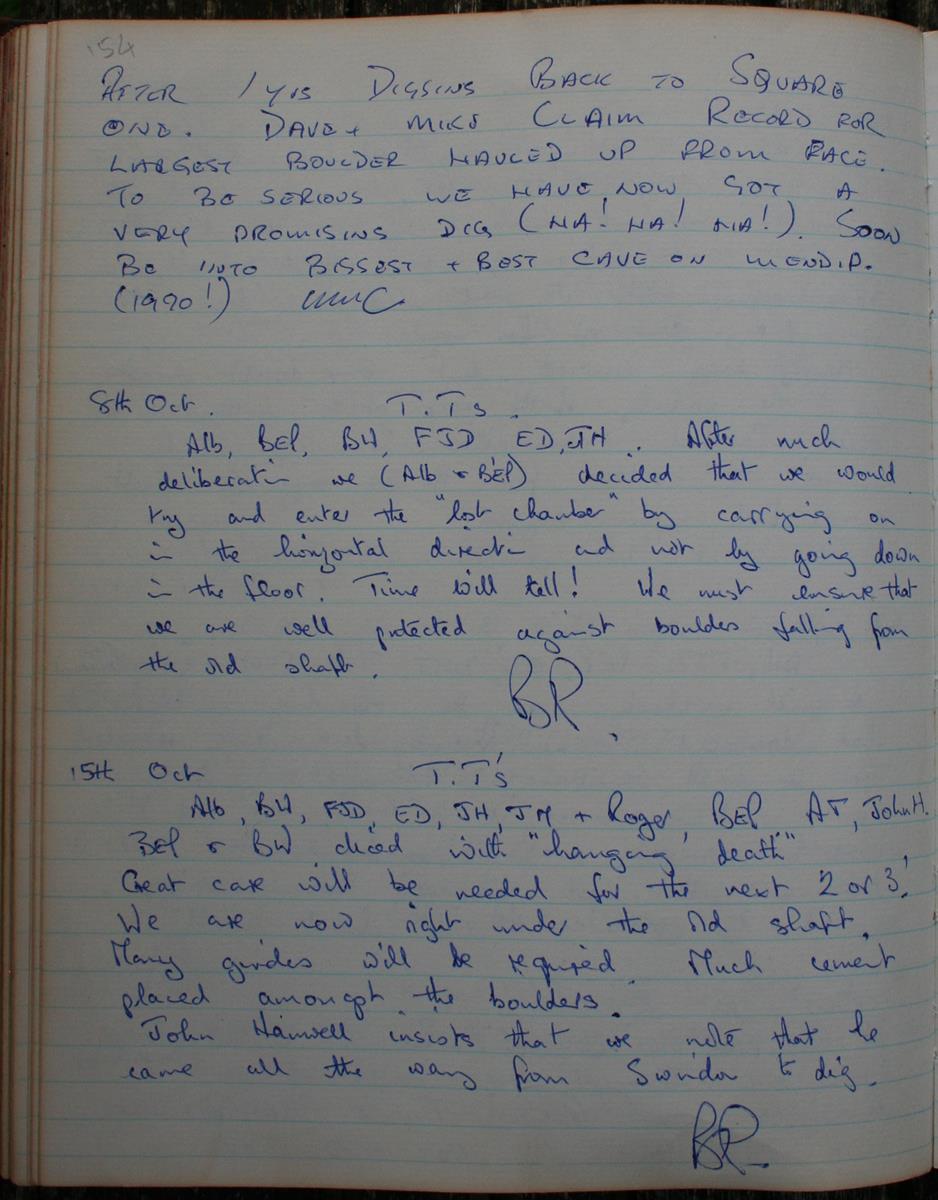 154
AFTER 1 YRS DIGGING BACK TO SQUARE
ONE. DAVE + MIKE CLAIM RECORD FOR
LARGEST BOULDER HAULED UP FROM FACE.
TO BE SERIOUS WE HAVE NOW GOT A
VERY PROMISING DIG (HA! HA! HA!). SOON
BE INTO BIGGEST + BEST CAVE ON MENDIP.
(1990!)
8th Oct. T.Ts.
Alb, BEP, BW, FJD ED, JH. After much
deliberation we (Alb & BEP) decided that we would
try and enter the "lost chamber" by carrying on
in the horizontal direction and not by going down
in the floor. Time will tell! We must ensure that
we are well protected against boulders falling from
the old shaft.
BP.
15th Oct T.T's
Alb, BW, FJD, ED, JH, JM + Roger, BEP AT, John H.
BEP & BW diced with "hanging death"
Great care will be needed for the next 2 or 3'.
We are now right under the old shaft.
Many girders will be required. Much cement
placed amongst the boulders.
John Hanwell insists that we note that he
came all the way from Swindon to dig.
BP.